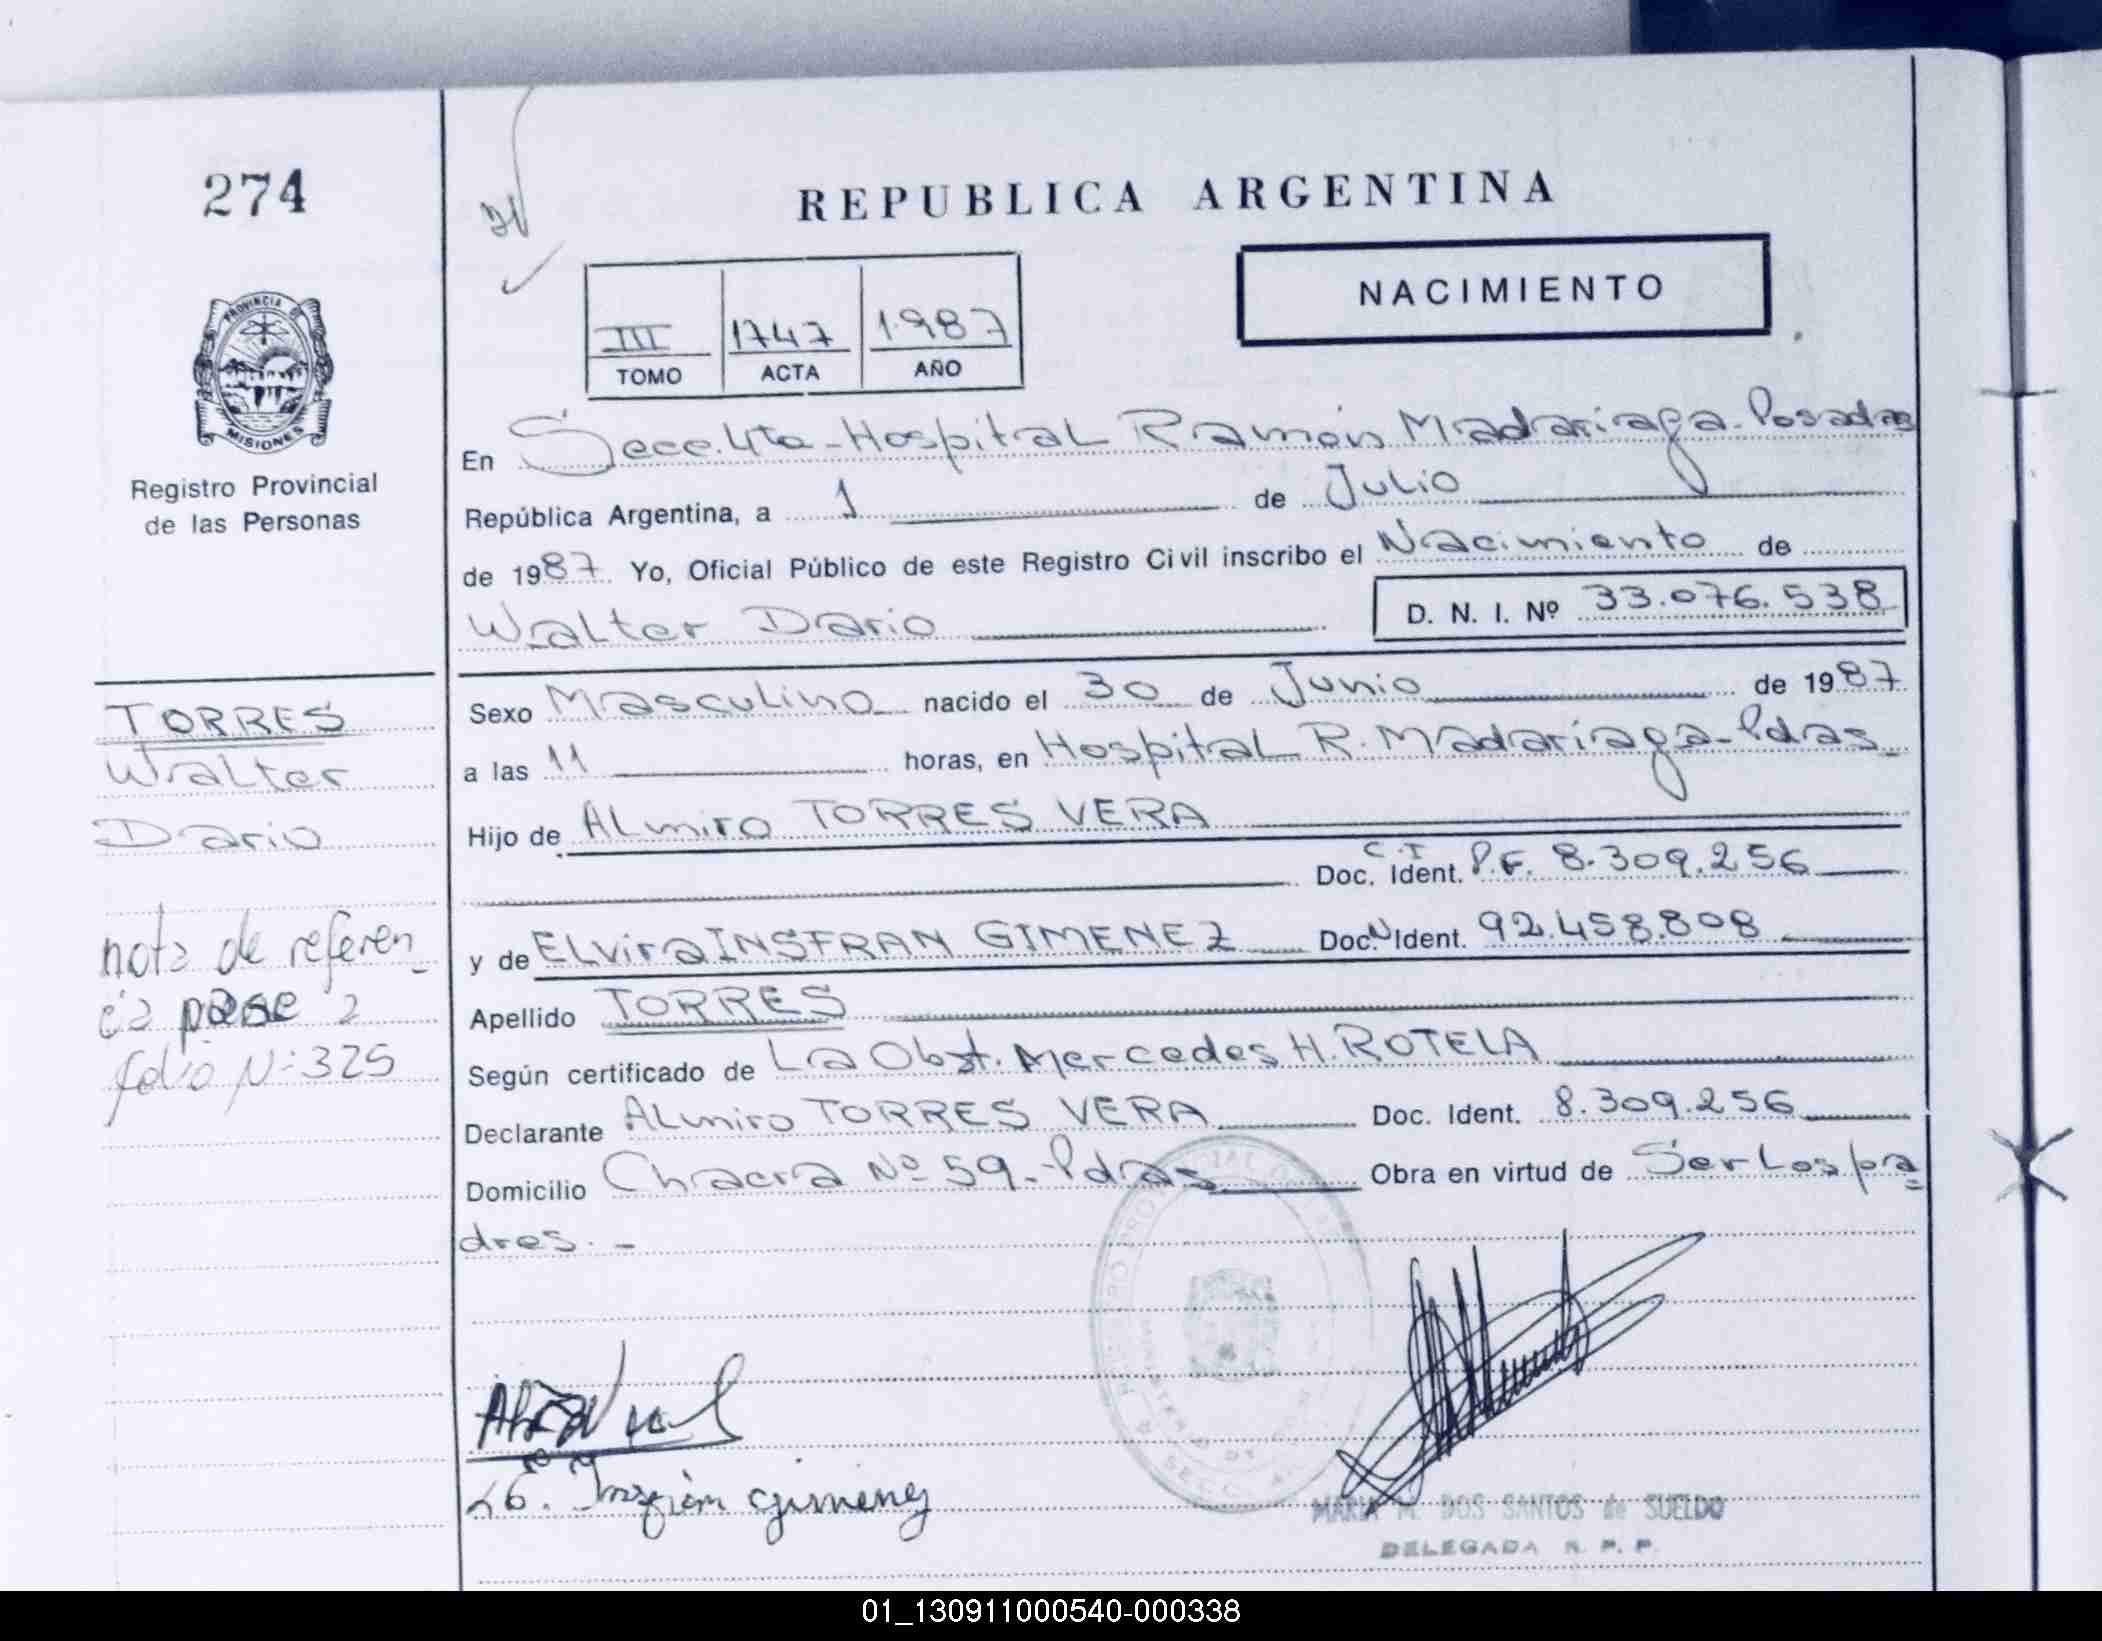 274
REPUBLICA ARGENTINA
NACIMIENTO
III 1747 1.987
TOMO ACTA AÑO
PROVINCIA DE
MISIONES
Registro Provincial
de las Personas
En Secc. 4ta - Hospital Ramón Madariaga - Posadas
República Argentina, a 1 de Julio
de 1987 Yo, Oficial Público de este Registro Civil inscribo el Nacimiento de
Walter Dario D. N. I. Nº 33.076.538
TORRES
Walter
Dario
nota de referen
cia pase a
folio Nº 325
Sexo Masculino nacido el 30 de Junio de 1987
a las 11 horas, en Hospital R. Madariaga - Pdas
Hijo de ALmiro TORRES VERA
C.I
Doc. Ident. P.F. 8.309.256
y de ELvira INSFRAN GIMENEZ Doc. N Ident. 92.458.808
Apellido TORRES
Según certificado de La Obst. Mercedes H. ROTELA
Declarante ALmiro TORRES VERA Doc. Ident. 8.309.256
Domicilio Chacra Nº 59 - Pdas Obra en virtud de Ser Los pa
dres. -
Insfrán Gimenez
MARIA M. DOS SANTOS de SUELDO
DELEGADA R. P. P.
01_130911000540-000338